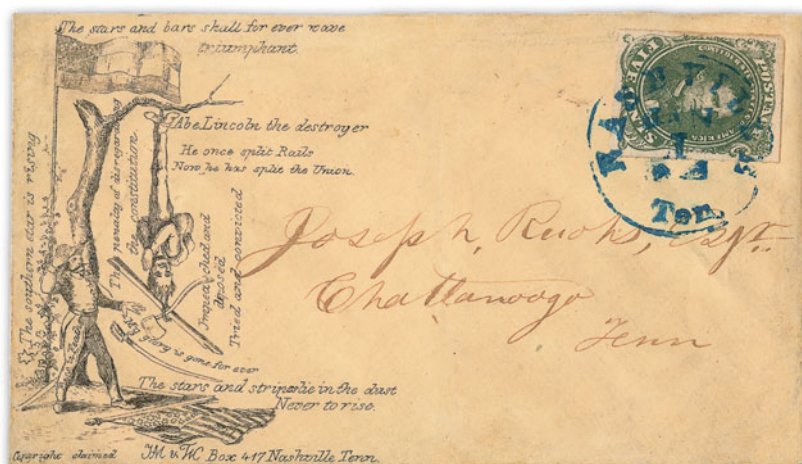 The stars and bars shall for ever wave
triumphant.
Abe Lincoln the destroyer
He once split Rails
Now he has split the Union.
The southern star is rising
The penalty of disregarding
the constitution.
Impeached and
deposed
Tried and convicted
My glory is gone for ever
The stars and stripes lie in the dust
Never to rise.
Copyright claimed
JM & WC Box 417 Nashville Tenn.
FIVE CENTS
POSTAGE
CONFEDERATE STATES OF AMERICA
NASHVILLE
JAN
1
Ten.
Joseph, Ruohs, Esqr.
Chattanooga
Tenn